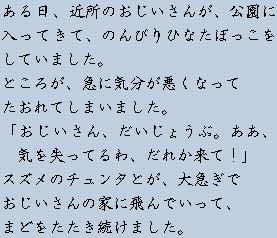 ある日、近所のおじいさんが、公園に
入ってきて、のんびりひなたぼっこを
していました。
ところが、急に気分が悪くなって
たおれてしまいました。
「おじいさん、だいじょうぶ。ああ、
気を失ってるわ、だれか来て！」
スズメのチュンタとが、大急ぎで
おじいさんの家に飛んでいって、
まどをたたき続けました。